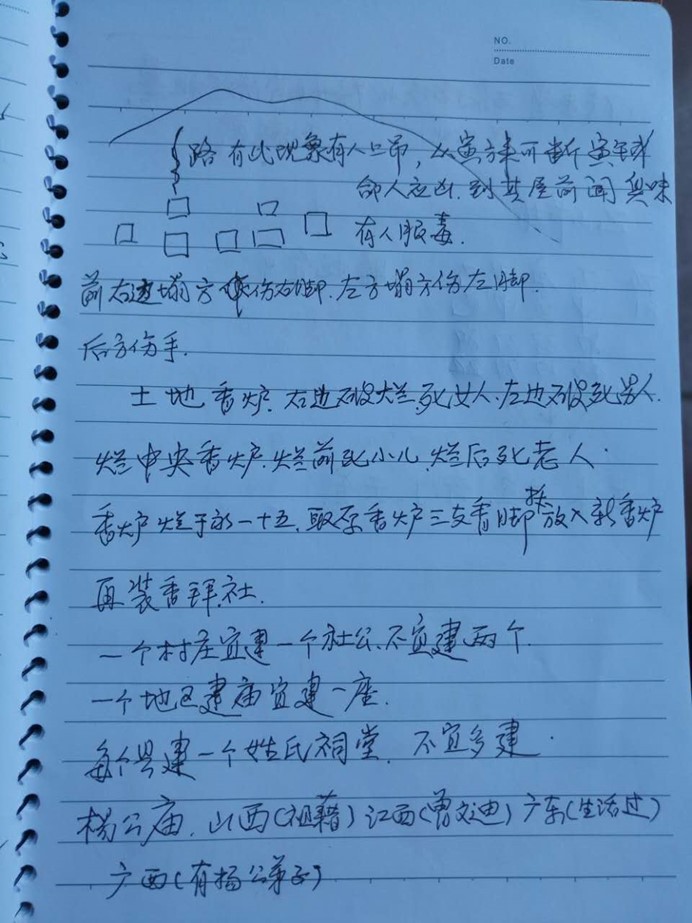 NO.
Date
路 有此现象有人上吊, 从寅方来可断寅年或
命人应凶. 到其屋前闻臭味
有人服毒.
前右边塌方伤右脚. 左方塌方伤左脚.
后方伤手.
土地香炉. 右边破烂死女人. 左边破死男人.
烂中央香炉. 烂前死小儿 烂后死老人.
香炉烂于初一十五. 取原香炉三支香脚 放入新香炉
再装香拜社.
一个村庄宜建一个社公. 不宜建两个.
一个地区建庙宜建一座.
每个县建一个姓氏祠堂. 不宜多建.
杨公庙. 山西(祖籍) 江西(曾文迪) 广东(生活过)
广西(有杨公弟子)